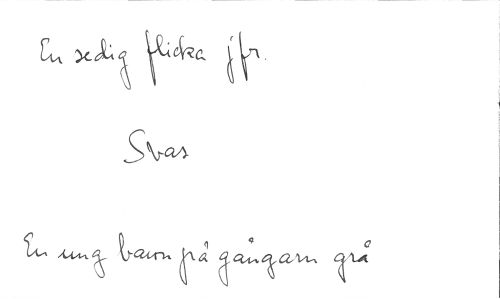 En sedig flicka jfr.
Svas
En ung baron på gångarn grå